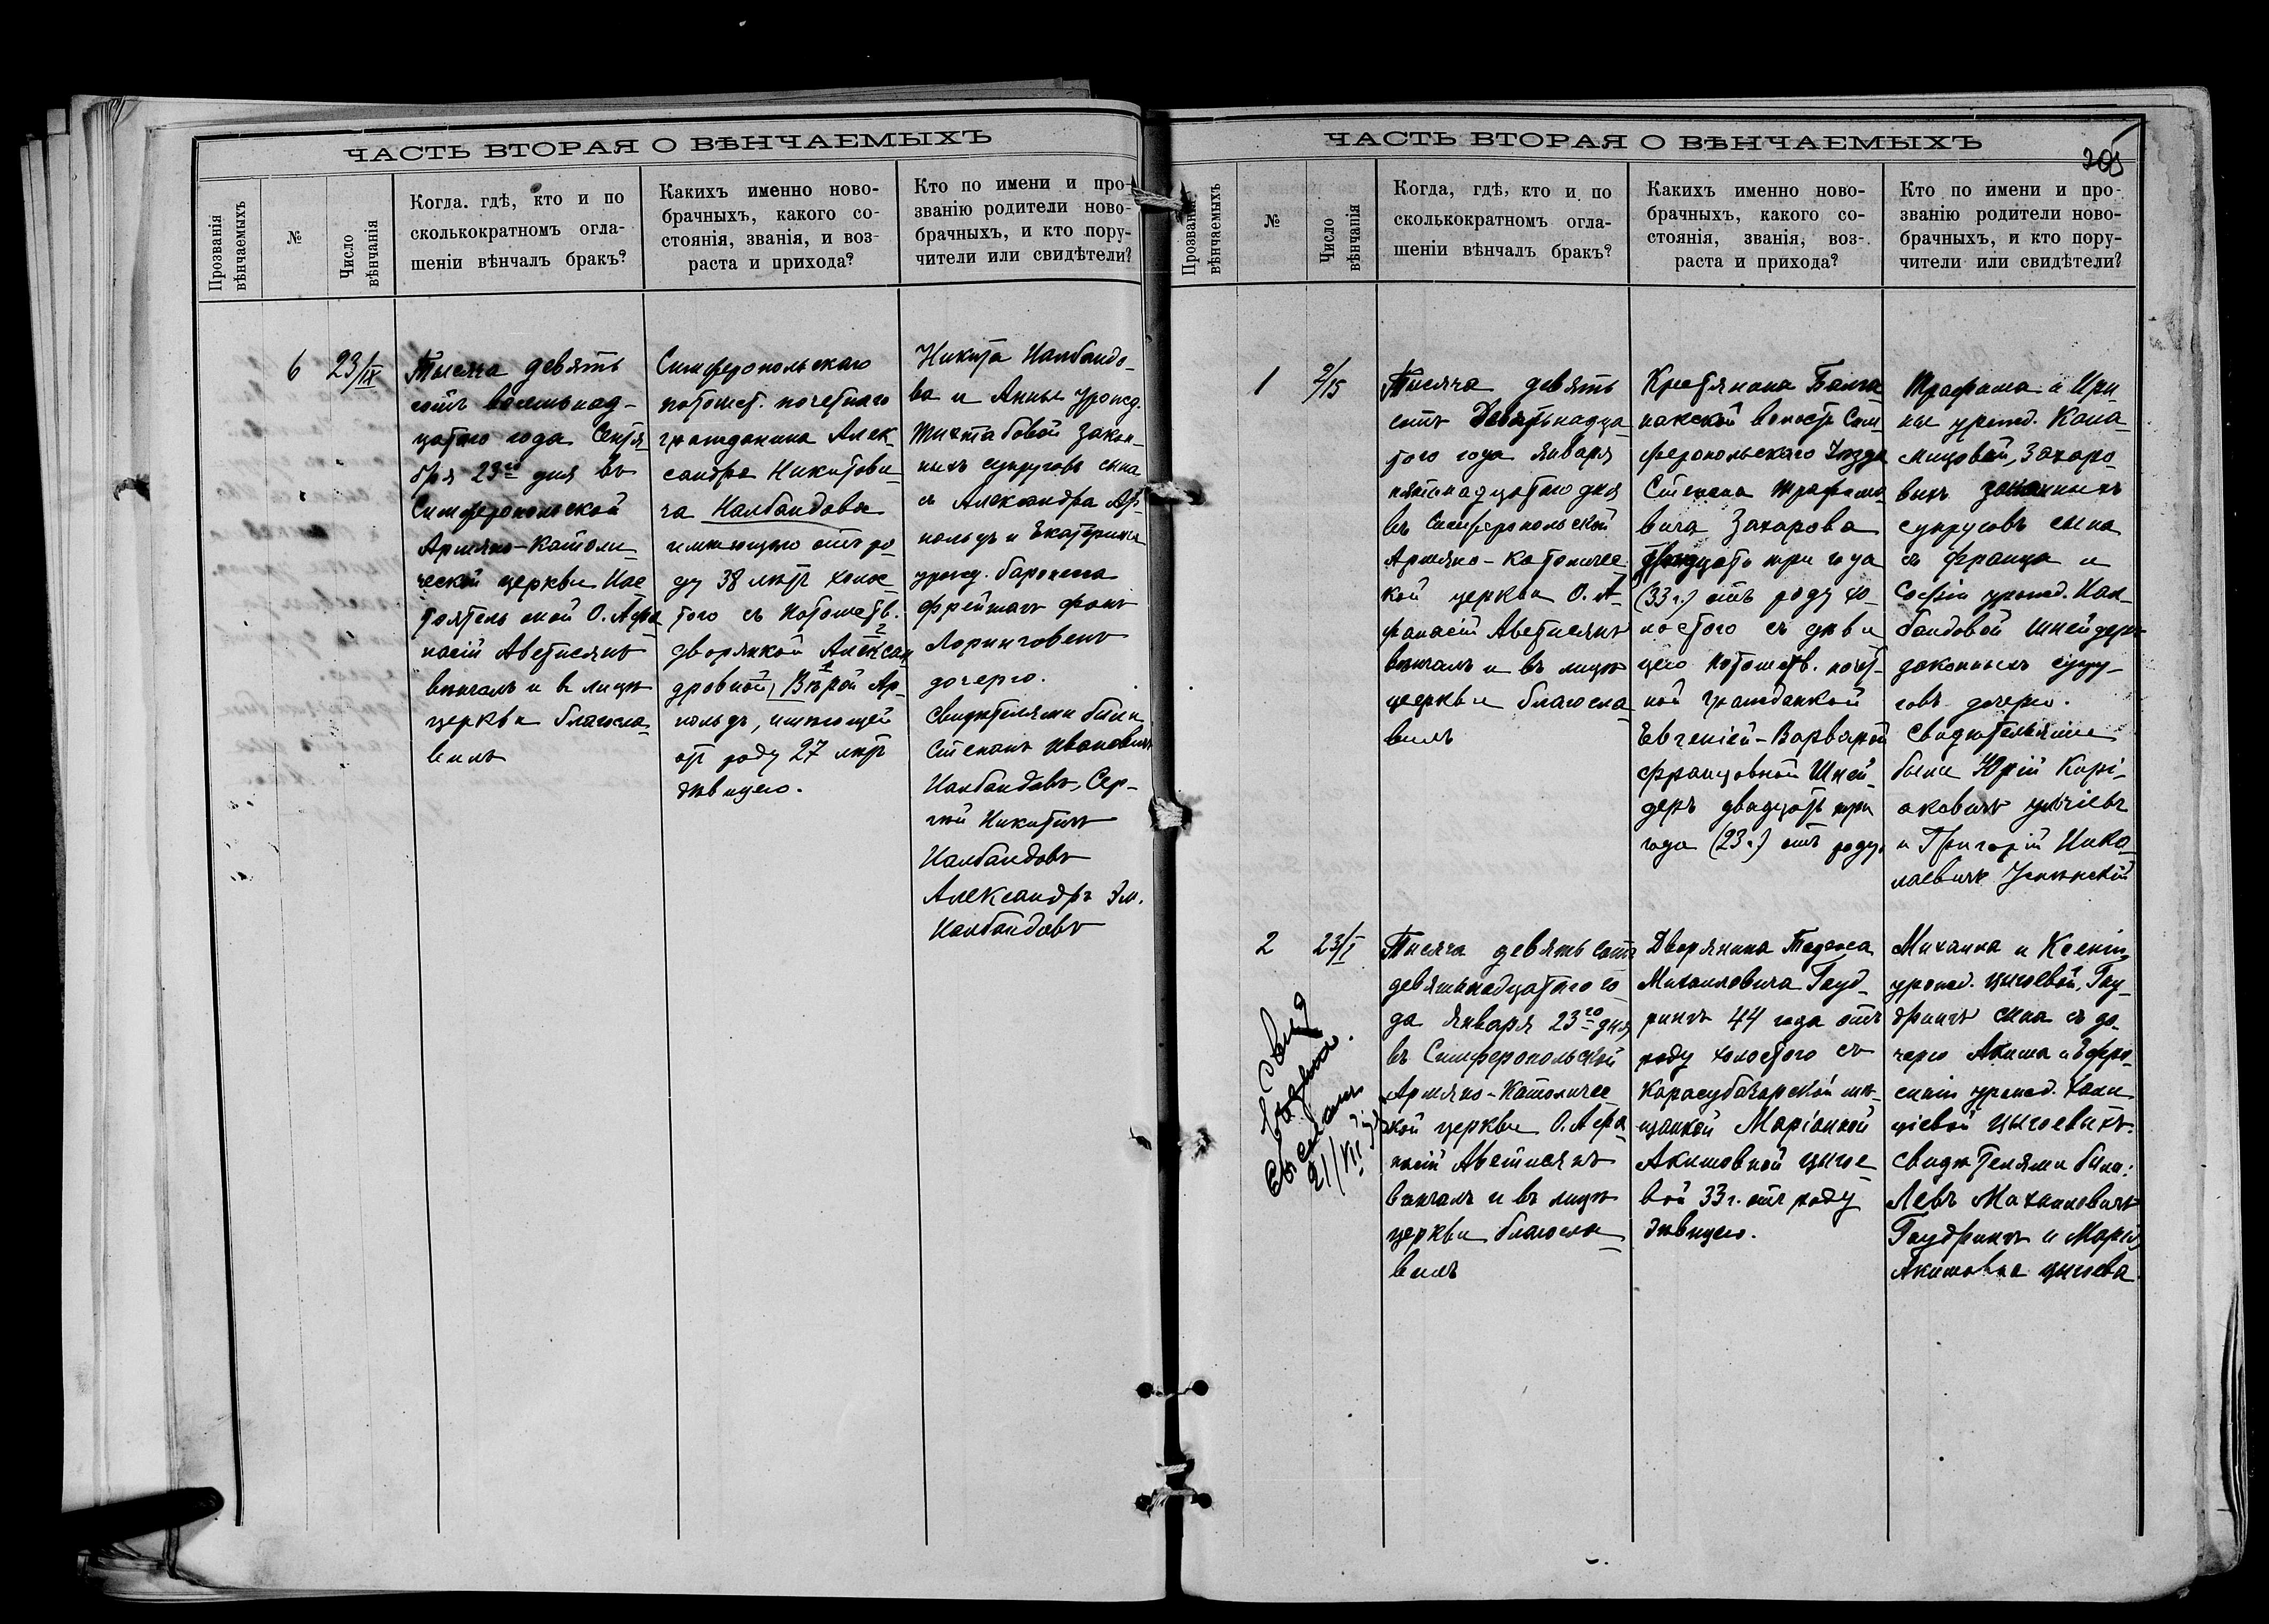 ЧАСТЬ ВТОРАЯ О ВѢНЧАЕМЫХЪ
Прозванія
вѣнчаемыхъ
№
Число
вѣнчанія
Когда, гдѣ, кто и по
сколькократномъ огла-
шеніи вѣнчалъ бракъ?
Какихъ именно ново-
брачныхъ, какого со-
стоянія, званія, и воз-
раста и прихода?
Кто по имени и про-
званію родители ново-
брачныхъ, и кто пору-
чители или свидѣтели?
6
23/IX
Тысяча девять
сотъ восемьнад-
цатаго года Сентя-
бря 23го дня въ
Симферопольской
Армяно-Католи-
ческой церкви Нас-
тоятель оной О. Афа-
насій Аветисянъ
вѣнчалъ и въ лицѣ
церкви благосла-
вилъ
Симферопольскаго
потомст. почетнаго
гражданина Алек-
сандра Никитови-
ча Налбандова
имѣющаго отъ ро-
ду 38 лѣтъ холос-
того съ потомств.
дворянкой Алексан-
дровной, Вѣрой Ар-
нольдъ, имѣющей
отъ роду 27 лѣтъ
дѣвицею.
Никита Налбандо-
ва и Анны урожд.
закон-
ныхъ супруговъ сына
съ Александра Ар-
нольдъ и Екатерины
урожд. баронесса
Фрейтагъ фонъ
Лоринговенъ
дочерью.
Свидѣтелями были
Степанъ Ивановичъ
Налбандовъ, Сер-
гѣй Никитичъ
Налбандовъ
Александръ Эм.
Налбандовъ
ЧАСТЬ ВТОРАЯ О ВѢНЧАЕМЫХЪ
205
Прозванія
вѣнчаемыхъ
№
Число
вѣнчанія
Когда, гдѣ, кто и по
сколькократномъ огла-
шеніи вѣнчалъ бракъ?
Какихъ именно ново-
брачныхъ, какого со-
стоянія, званія, воз-
раста и прихода?
Кто по имени и про-
званію родители ново-
брачныхъ, и кто пору-
чители или свидѣтели?
1
/15
Тысяча девять
сотъ девятьнадца-
того года Января
пятнадцатаго дня
въ Симферопольской
Армяно-Католичес-
кой церкви О. А-
фанасій Аветисянъ
вѣнчалъ и въ лицѣ
церкви благосла-
вилъ
Крестянина
волости Сим-
феропольскаго Уѣзда
Степана Трафимо-
вича Захарова
тридцать три года
(33 г.) отъ роду хо-
лостого съ дѣви-
цею потомств. почет-
ной гражданкой
Евгеніей-Варварой
Францовной Шней-
деръ двадцать три
года (23 г.) отъ роду.
Трафима и Ири-
ны урожд.
Захаро-
выхъ законныхъ
супруговъ сына
съ Франца и
Софіи урожд. Нал-
бандовой Шнейдеръ
законныхъ супру-
говъ дочерью.
Свидѣтелями
были Юрій Кирі-
аковичъ
и Григорій Нико-
лаевичъ
2
23/I
Тысяча девять сотъ
девятьнадцатаго го-
да Января 23го дня
въ Симферопольской
Армяно-Католичес-
кой церкви О. Афа-
насій Аветисянъ
вѣнчалъ и въ лицѣ
церкви благосла-
вилъ
Дворянина
Михаиловича Гауд-
рингъ 44 года отъ
роду холостого съ
Карасубазарской мѣ-
щанкой Маріанной
Акимовной
33 г. отъ роду
дѣвицею.
Михаила и Ксеніи
урожд. Гау-
дрингъ сына съ до-
черью Акима и Эфро-
синіи урожд.
Свидѣтелями были:
Левъ Михаиловичъ
Гаудрингъ и Марія
Акимовна
21/VII